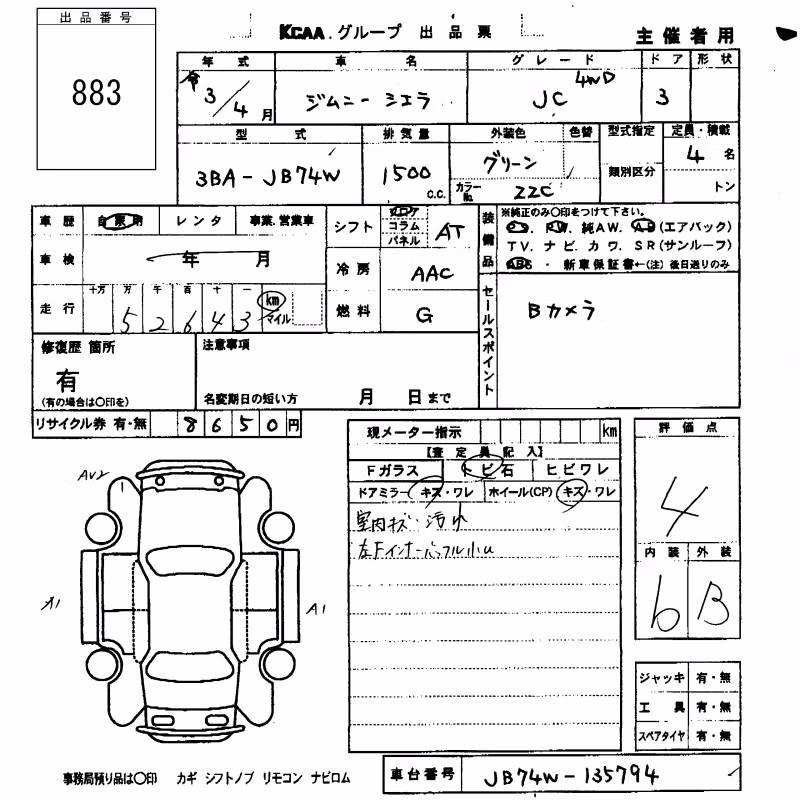 出品番号
883
KCAA.グループ 出品票
主催者用
年式 車名 グレード ドア 形状
令3/4月 ジムニーシエラ JC 4WD 3
型式 排気量 外装色 色替 型式指定 定員・積載
3BA-JB74W 1500 C.C. グリーン 類別区分 4名
カラーNo. ZZC トン
車歴 自家用 レンタ 事業.営業車
シフト フロア コラム パネル AT
車検 年 月
冷房 AAC
走行 十万 万 千 百 十 一 km マイル
52643
燃料 G
装備品
※純正のみ〇印をつけて下さい。
P.S. P.W. 純AW. A.B(エアバック)
TV. ナビ. カワ. SR(サンルーフ)
ABS・新車保証書←(注)後日送りのみ
セールスポイント
Bカメラ
修復歴 箇所
有
(有の場合は〇印を)
注意事項
名変期日の短い方 月 日まで
リサイクル券 有・無 8650円
現メーター指示 km
【査定員記入】
Fガラス トビ石 ヒビワレ
ドアミラー キズ・ワレ ホイール(CP) キズ・ワレ
室内キズ・汚れ
左Fインナーパネル小u
評価点
4
内装 外装
b B
AV2
A1
A1
ジャッキ 有・無
工具 有・無
スペアタイヤ 有・無
事務局預り品は〇印 カギ シフトノブ リモコン ナビロム
車台番号 JB74W-135794